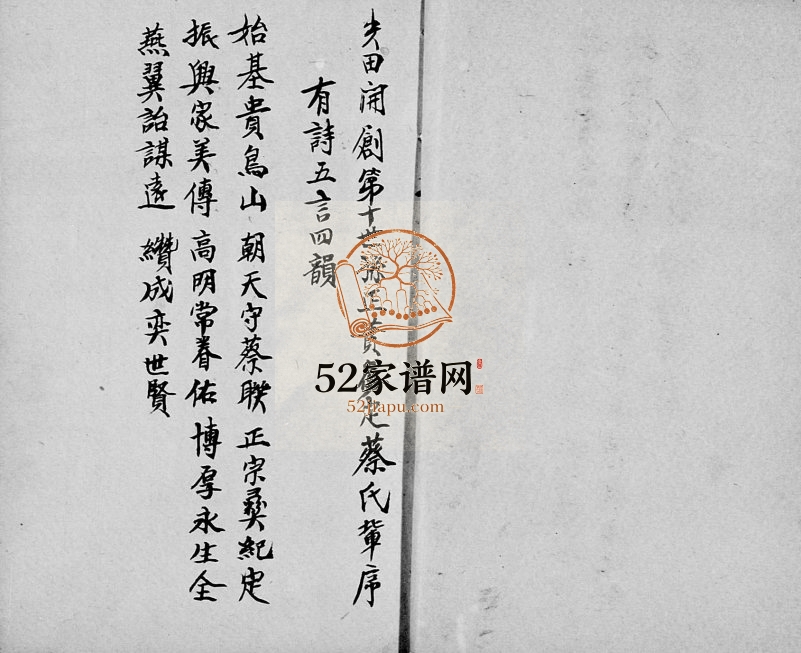 田開創第十世孫 蔡氏輩序
有詩五言四韻
始基貴鳥山 朝天守蔡聯 正宗彝紀定
振興家美傳 高明常眷佑 博厚永生全
燕翼詒謀遠 纘成奕世賢
52家谱网
52jiapu.com